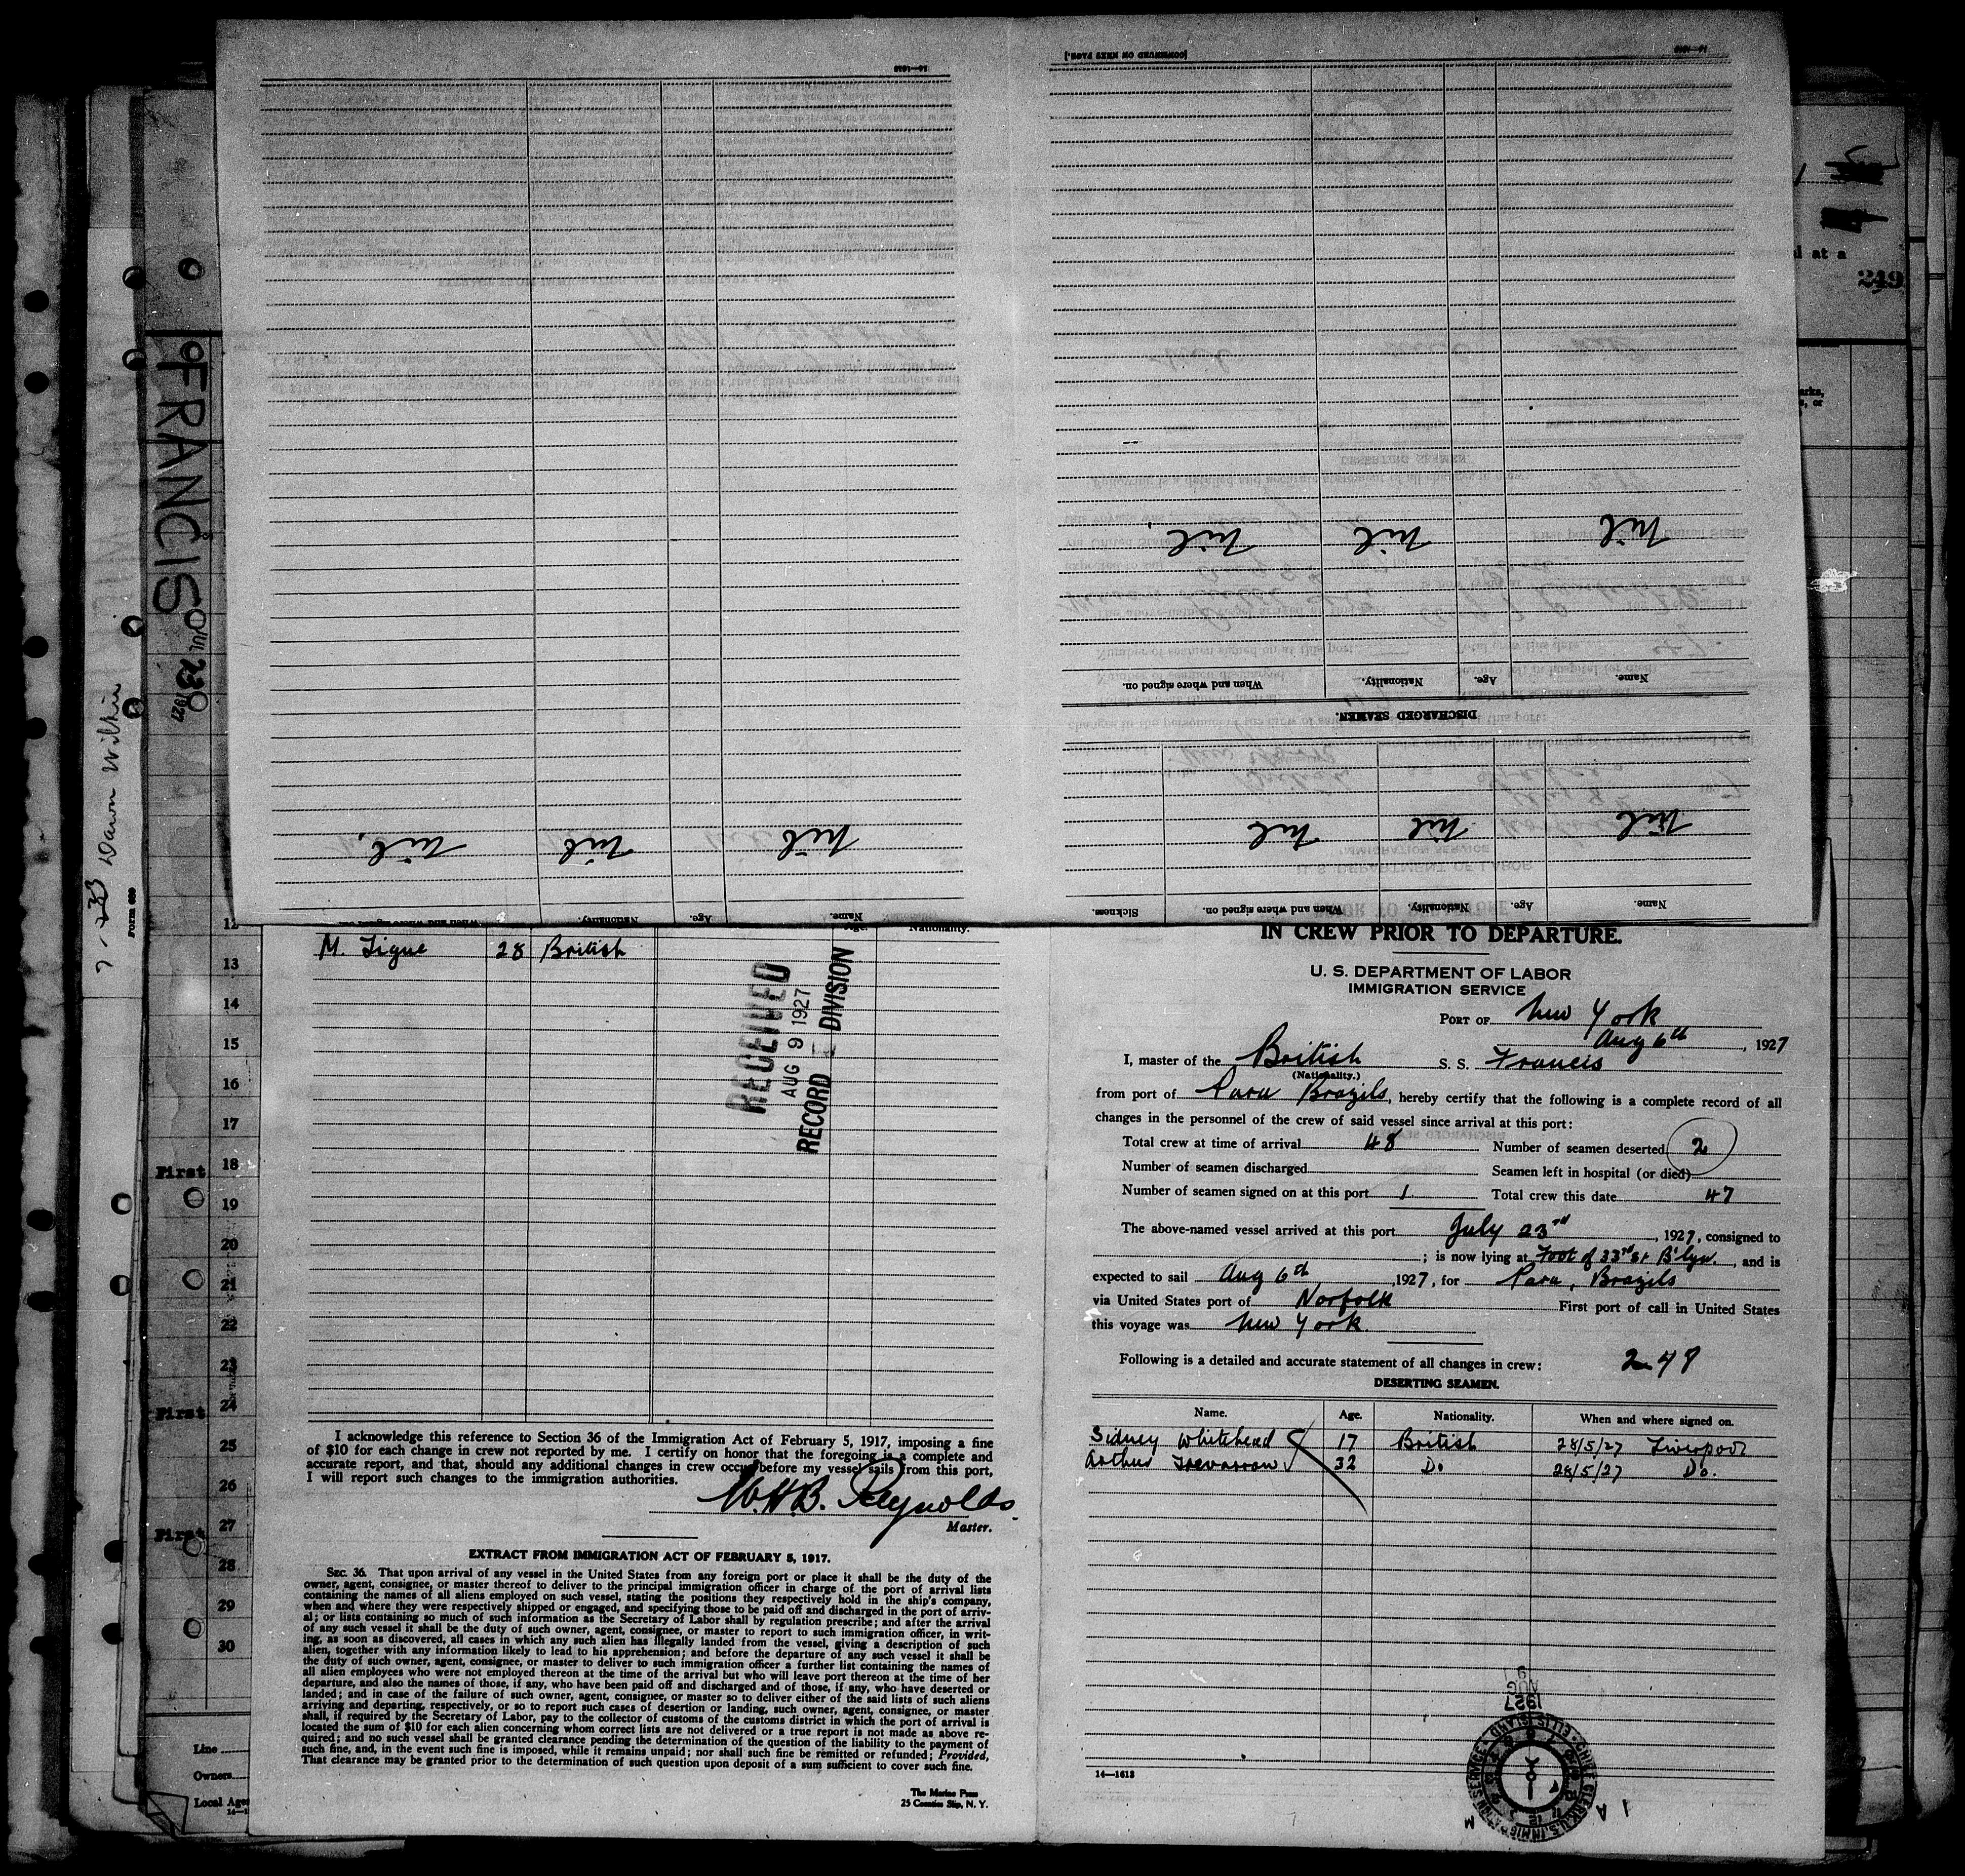 [CONTINUED ON NEXT PAGE.]
Nil Nil Nil
Name. Age. Nationality. When and where signed on.
DISCHARGED SEAMEN.
Nil Nil Nil
Name. Age. Nationality. When and where signed on. Sickness.
Nil Nil Nil.
Name. Age. Nationality.
FRANCIS
JUL 23 1927
Dawn Wilkie
Form 680
249
l at a
Age. Nationality.
M. Tigue 28 British
RECEIVED
AUG 9 1927
RECORD DIVISION
12
13
14
15
16
17
First 18
19
20
21
22
23
First 24
25
26
First 27
28
29
30
Line
Owners
Local Age
I acknowledge this reference to Section 36 of the Immigration Act of February 5, 1917, imposing a fine
of $10 for each change in crew not reported by me. I certify on honor that the foregoing is a complete and
accurate report, and that, should any additional changes in crew occur before my vessel sails from this port,
I will report such changes to the immigration authorities.
W.H.B. Reynolds.
Master.
EXTRACT FROM IMMIGRATION ACT OF FEBRUARY 5, 1917.
SEC. 36. That upon arrival of any vessel in the United States from any foreign port or place it shall be the duty of the
owner, agent, consignee, or master thereof to deliver to the principal immigration officer in charge of the port of arrival lists
containing the names of all aliens employed on such vessel, stating the positions they respectively hold in the ship's company,
when and where they were respectively shipped or engaged, and specifying those to be paid off and discharged in the port of arriv-
al; or lists containing so much of such information as the Secretary of Labor shall by regulation prescribe; and after the arrival
of any such vessel it shall be the duty of such owner, agent, consignee, or master to report to such immigration officer, in writ-
ing, as soon as discovered, all cases in which any such alien has illegally landed from the vessel, giving a description of such
alien, together with any information likely to lead to his apprehension; and before the departure of any such vessel it shall be
the duty of such owner, agent, consignee, or master to deliver to such immigration officer a further list containing the names of
all alien employees who were not employed thereon at the time of the arrival but who will leave port thereon at the time of her
departure, and also the names of those, if any, who have been paid off and discharged and of those, if any, who have deserted or
landed; and in case of the failure of such owner, agent, consignee, or master so to deliver either of the said lists of such aliens
arriving and departing, respectively, or so to report such cases of desertion or landing, such owner, agent, consignee, or master
shall, if required by the Secretary of Labor, pay to the collector of customs of the customs district in which the port of arrival is
located the sum of $10 for each alien concerning whom correct lists are not delivered or a true report is not made as above re-
quired; and no such vessel shall be granted clearance pending the determination of the question of the liability to the payment of
such fine, and, in the event such fine is imposed, while it remains unpaid; nor shall such fine be remitted or refunded; Provided,
That clearance may be granted prior to the determination of such question upon deposit of a sum sufficient to cover such fine.
The Marine Press
25 Coenties Slip, N. Y.
IN CREW PRIOR TO DEPARTURE.
U. S. DEPARTMENT OF LABOR
IMMIGRATION SERVICE
PORT OF New York
Aug 6th, 1927
I, master of the British S. S. Francis
(Nationality.)
from port of Para Brazils, hereby certify that the following is a complete record of all
changes in the personnel of the crew of said vessel since arrival at this port:
Total crew at time of arrival 48 Number of seamen deserted 2
Number of seamen discharged Seamen left in hospital (or died)
Number of seamen signed on at this port 1 Total crew this date 47
The above-named vessel arrived at this port July 23rd, 1927, consigned to
; is now lying at Foot of 33rd St B'lyn., and is
expected to sail Aug 6th, 1927, for Para, Brazils
via United States port of Norfolk First port of call in United States
this voyage was New York.
Following is a detailed and accurate statement of all changes in crew:
DESERTING SEAMEN.
Name. Age. Nationality. When and where signed on.
Sidney Whitehead 17 British 28/5/27 Liverpool
Arthur Trevarrow 32 Do 28/5/27 Do.
14—1613
AUG 1927
CHIEF CLERK, U.S. IMMIG'TION SERVICE ELLIS ISLAND